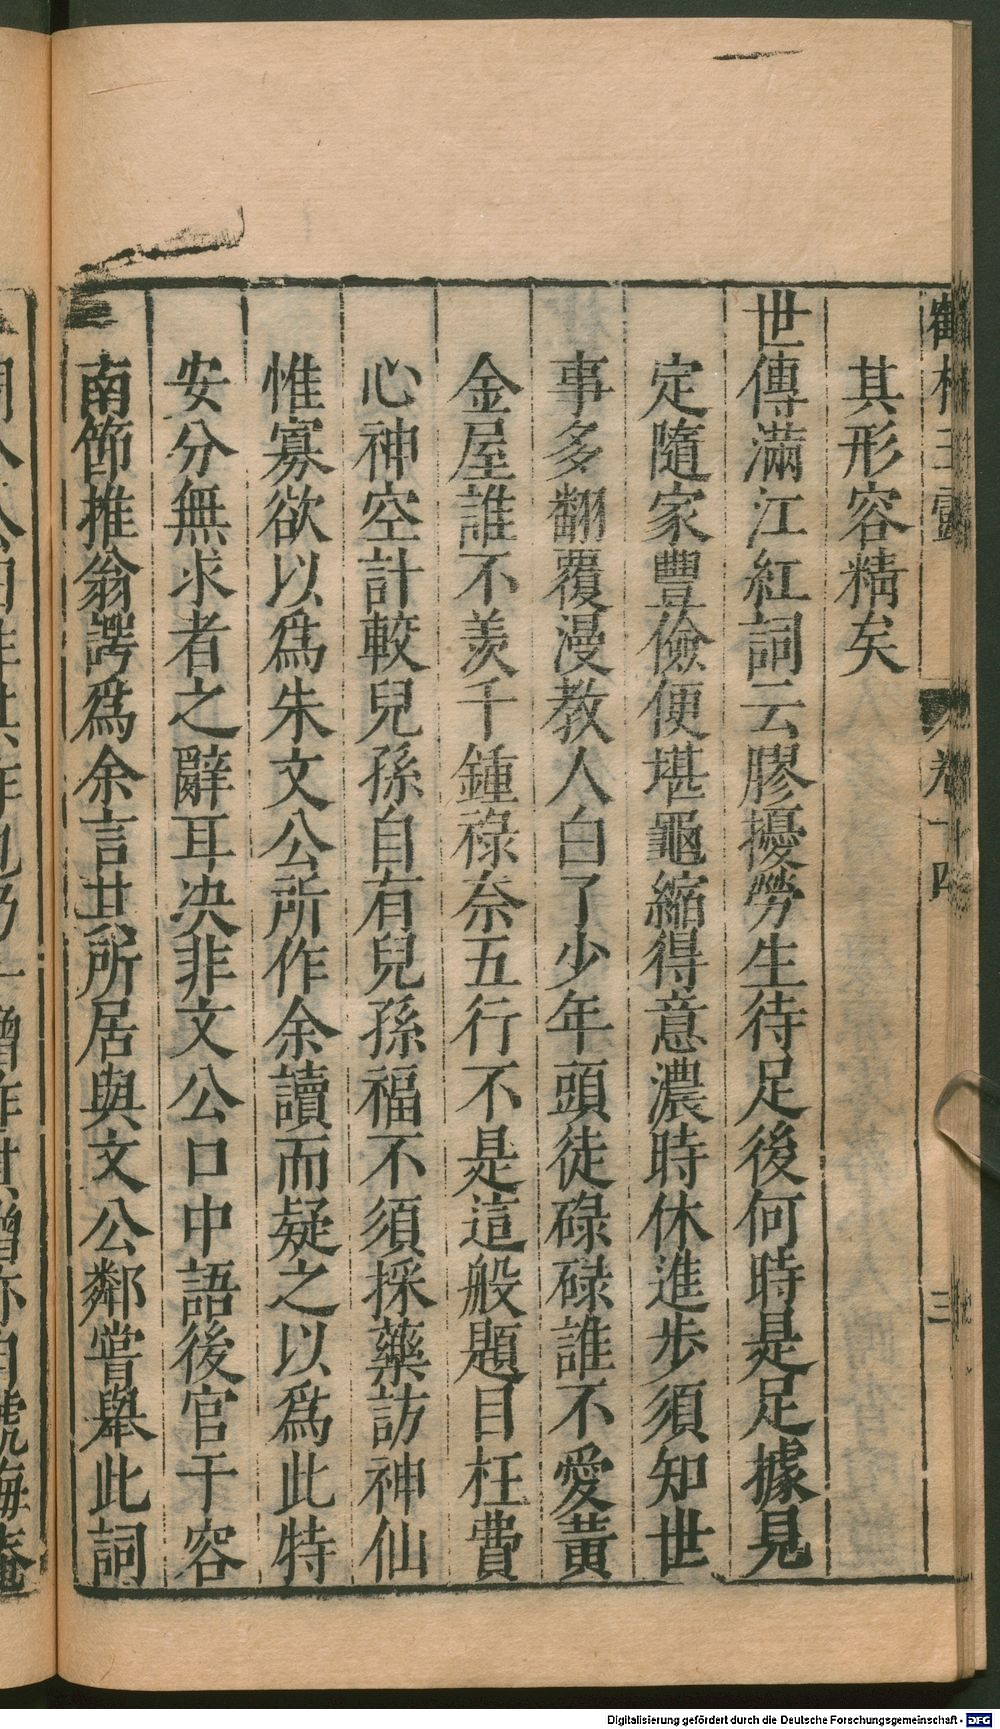 鶴林玉露 卷十四 三
其形容精矣
世傳滿江紅詞云膠擾勞生待足後何時是足據見
定隨家豐儉便堪龜縮得意濃時休進步須知世
事多翻覆漫教人白了少年頭徒碌碌誰不愛黃
金屋誰不羨千鍾祿奈五行不是這般題目枉費
心神空計較兒孫自有兒孫福不須採藥訪神仙
惟寡欲以爲朱文公所作余讀而疑之以爲此特
安分無求者之辭耳决非文公口中語後官于容
南節推翁諤爲余言其所居與文公鄰嘗舉此詞
Digitalisierung gefördert durch die Deutsche Forschungsgemeinschaft - DFG